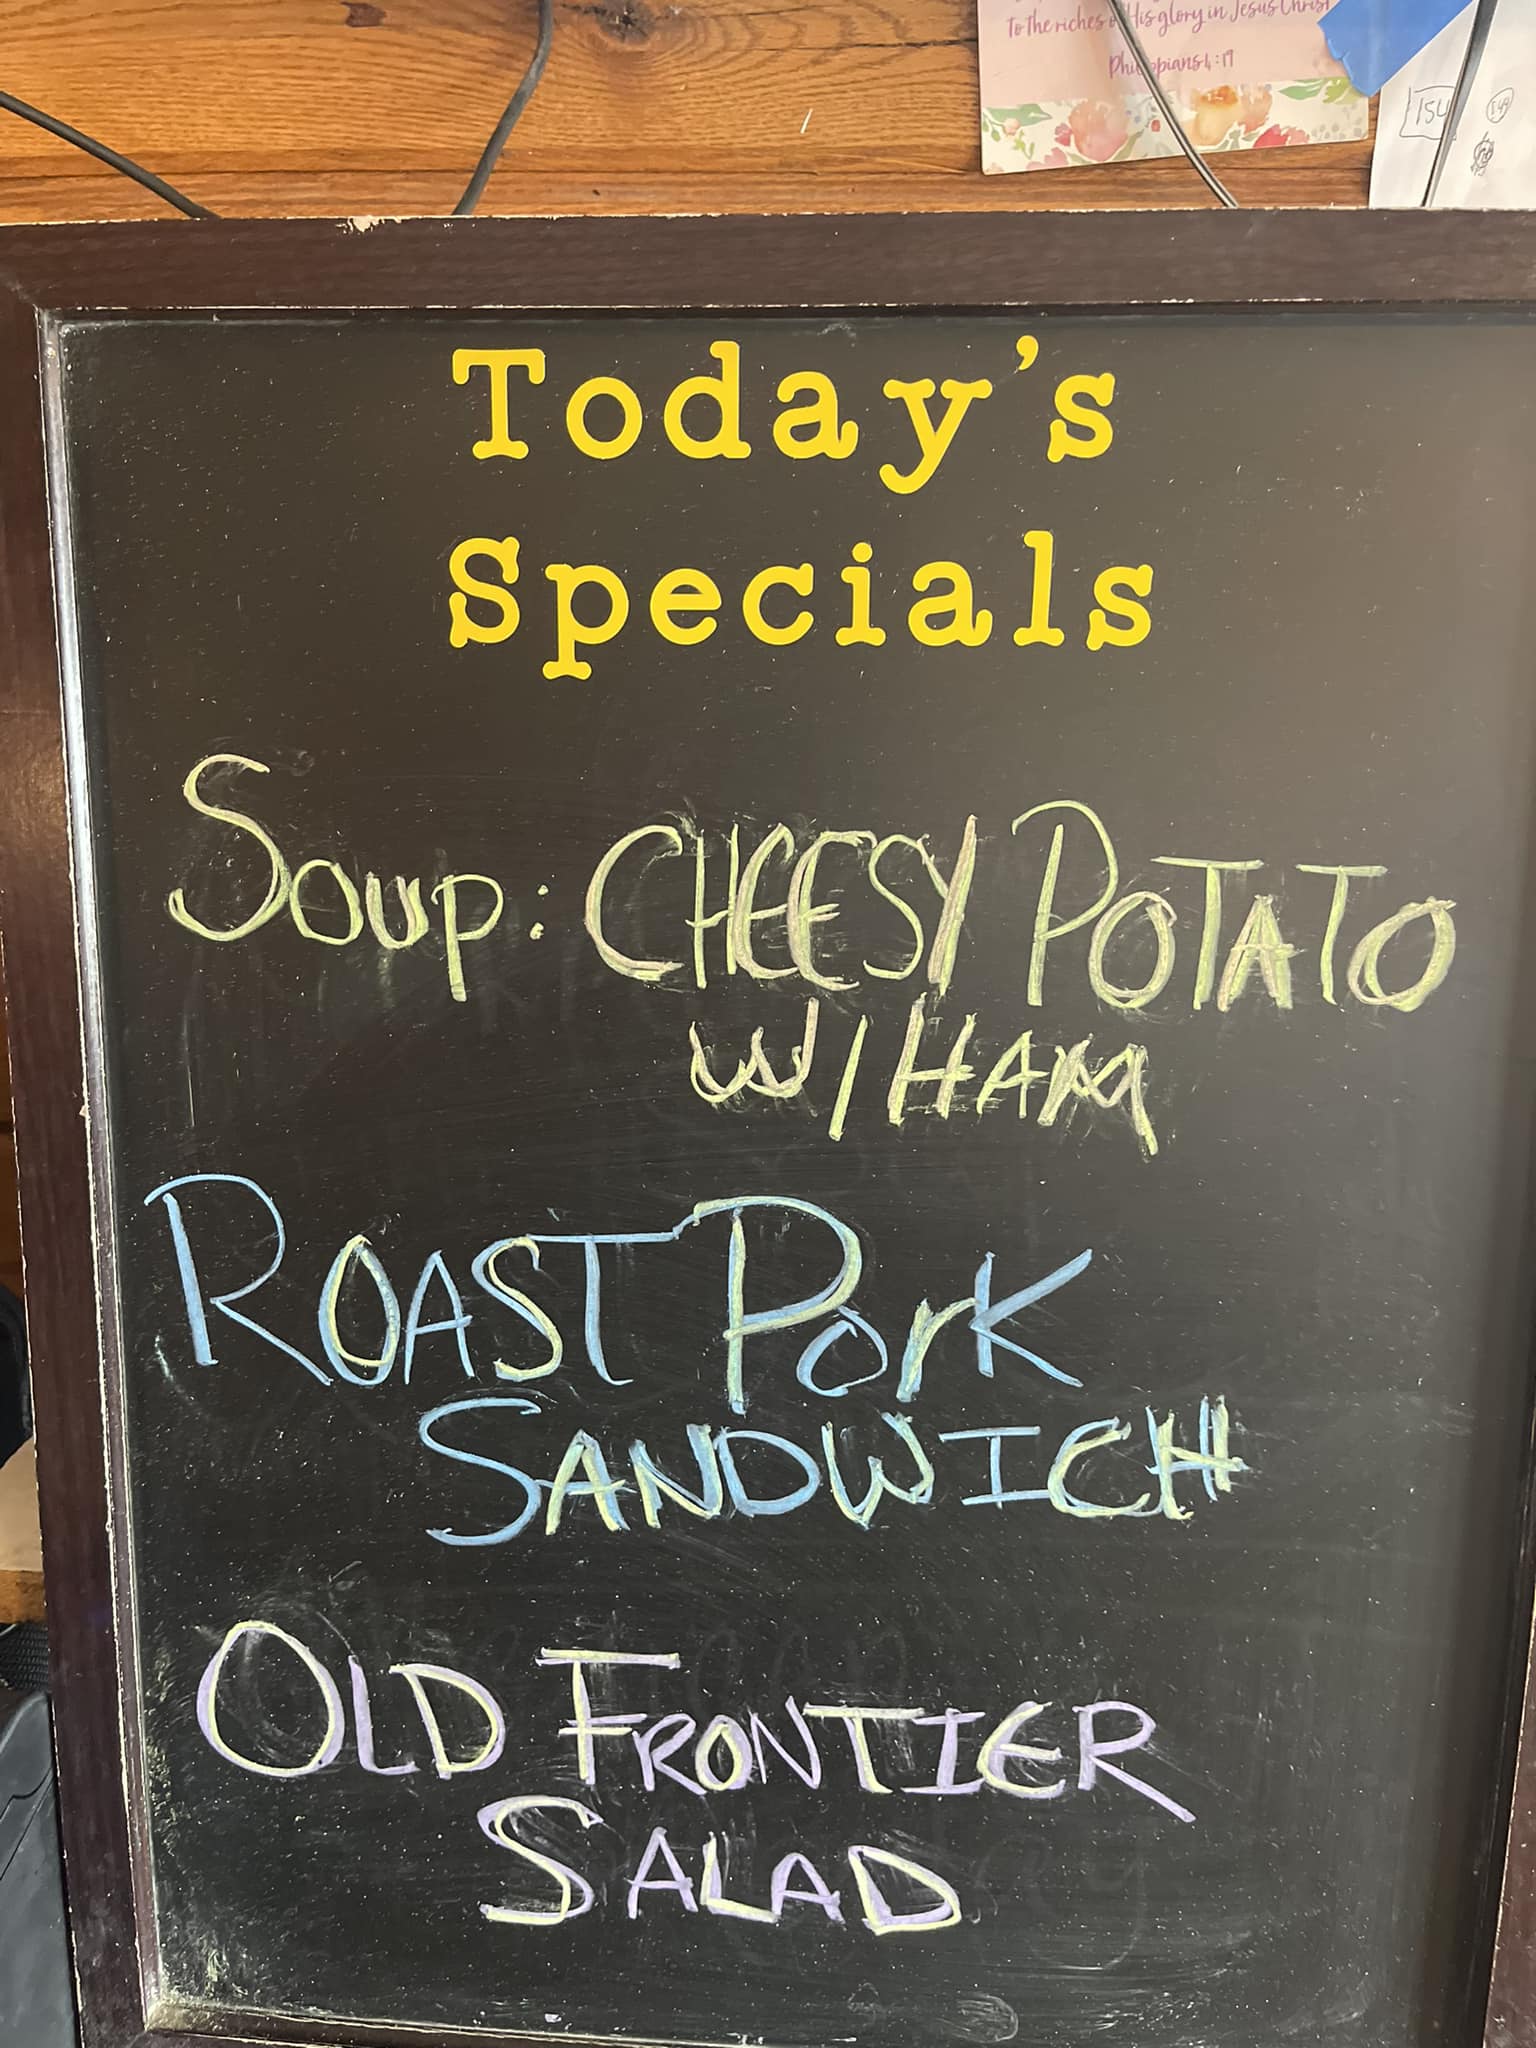 to the riches of His glory in Jesus Christ
Philippians 4:19
154
149
Today's
Specials
Soup: CHEESY POTATO
W/HAM
ROAST PORK
SANDWICH
OLD FRONTIER
SALAD